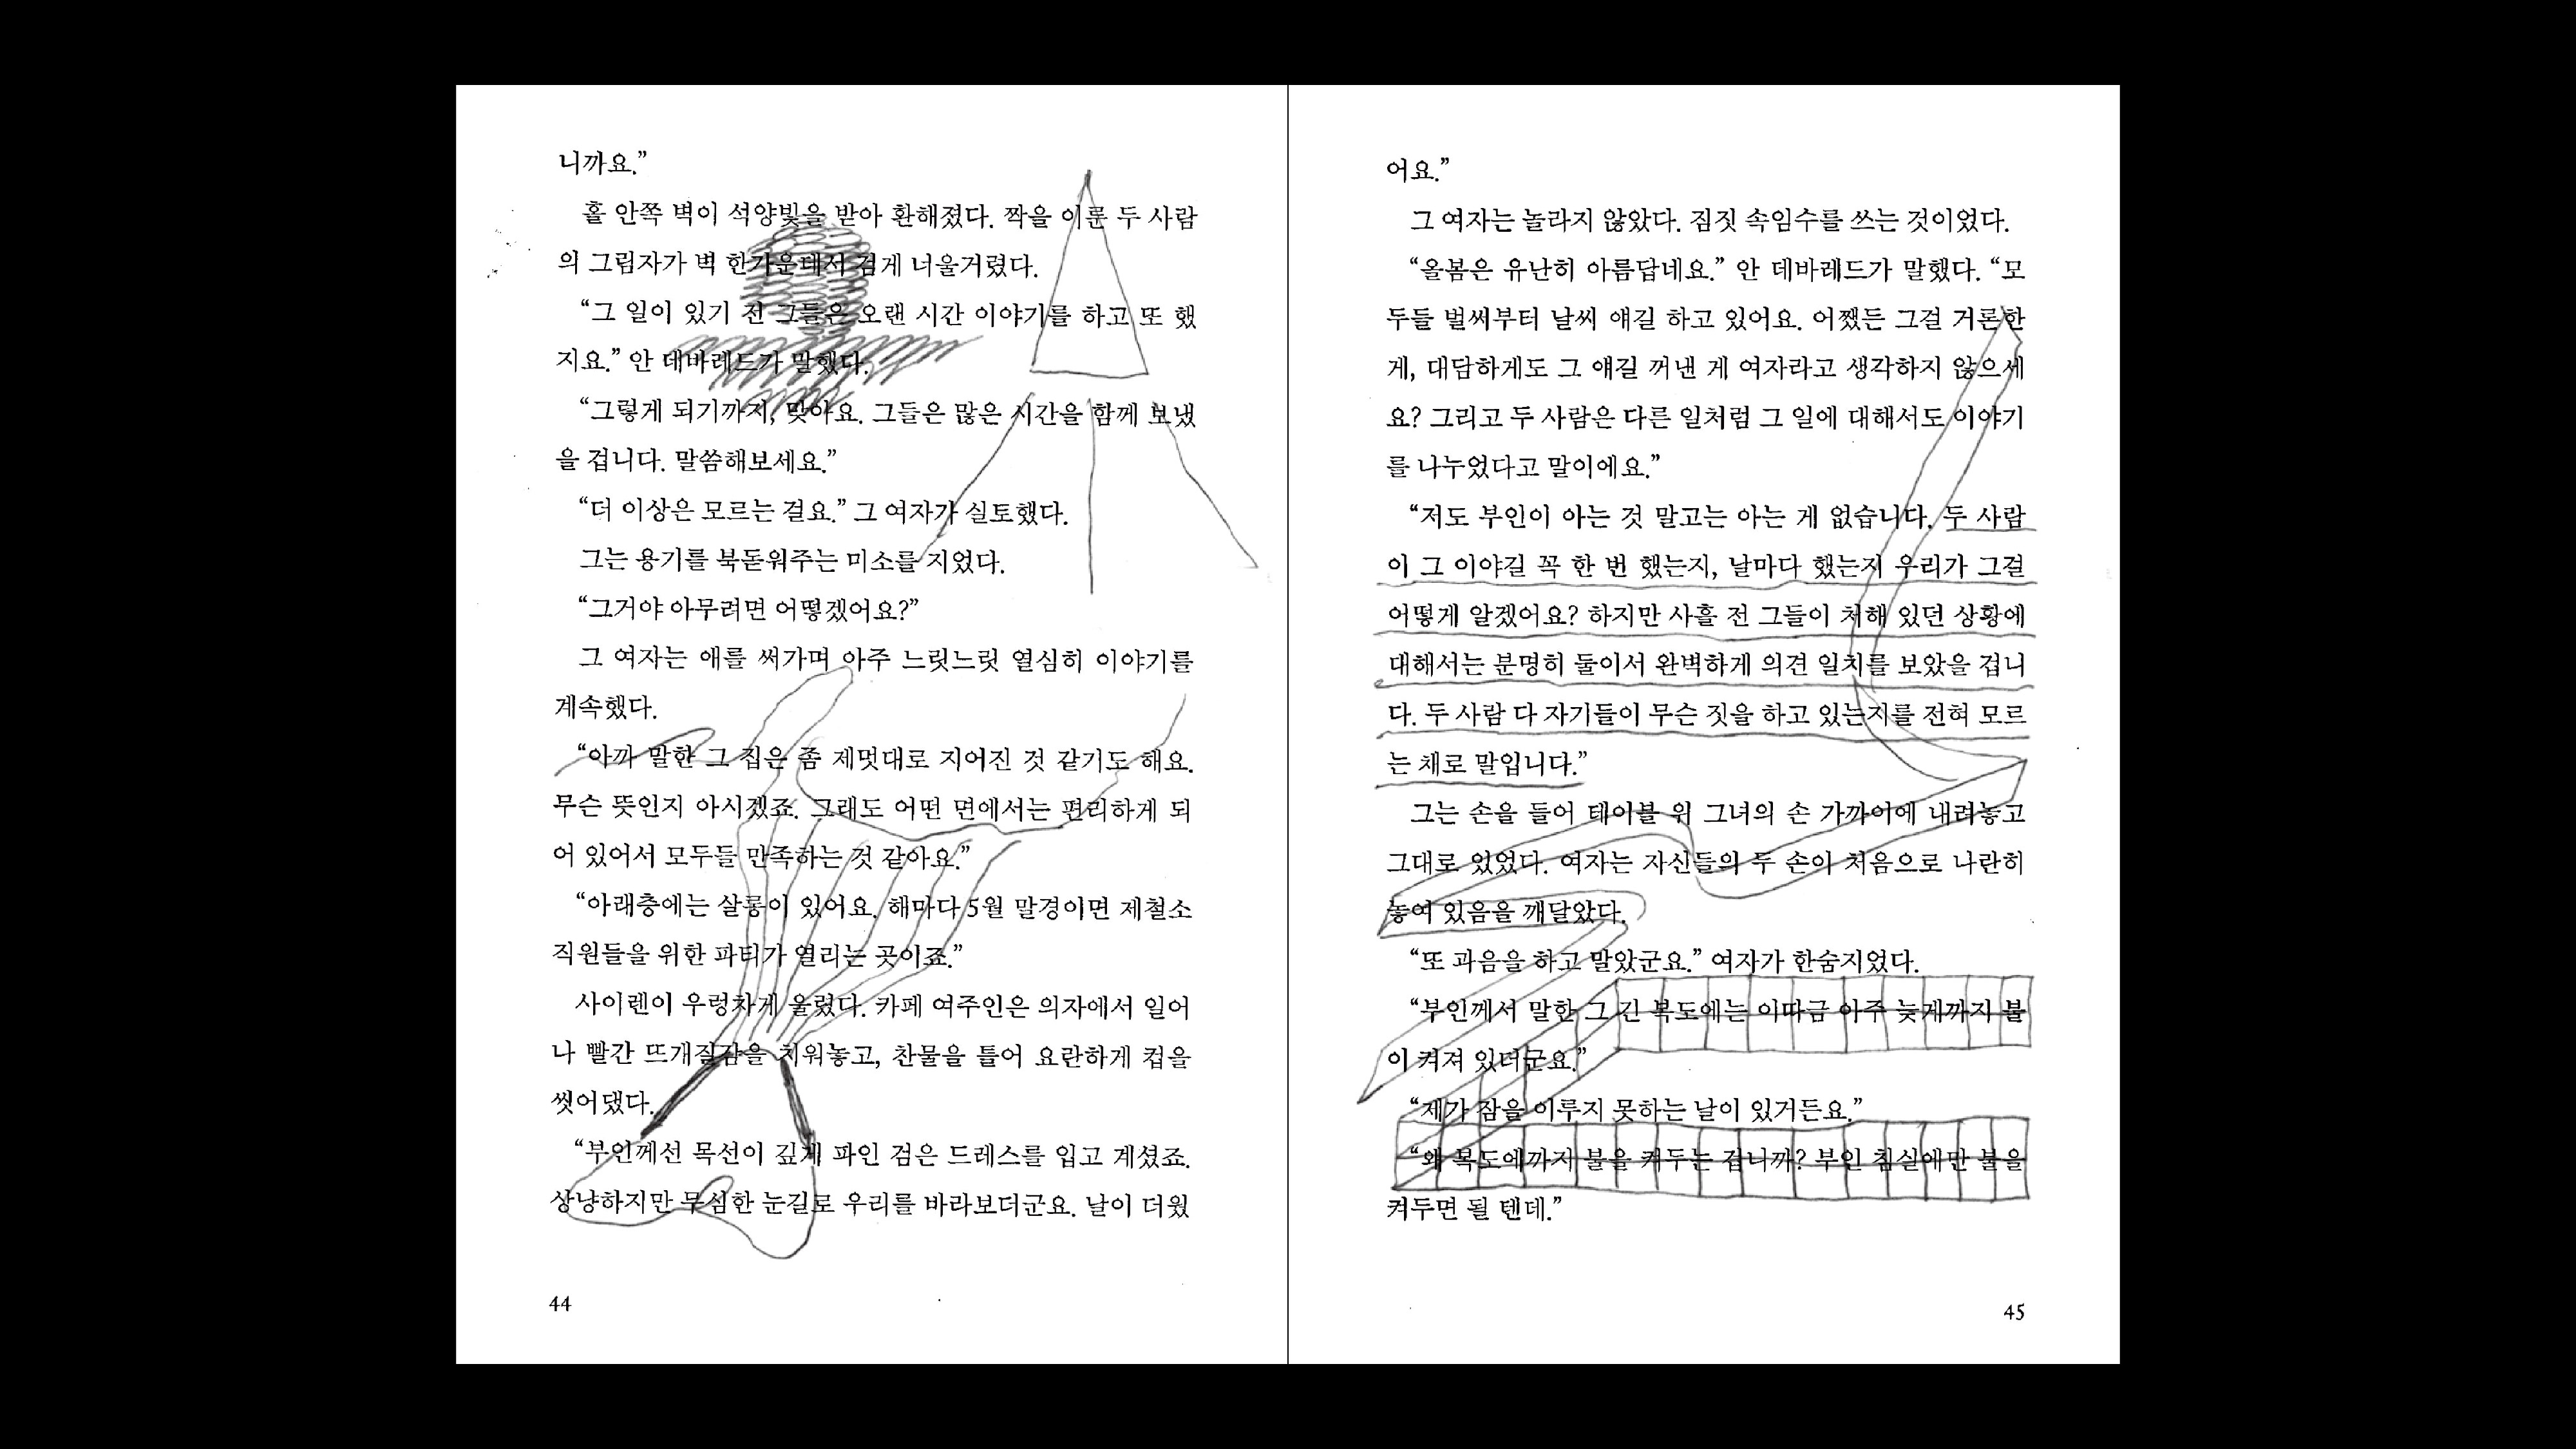 니까요.”
홀 안쪽 벽이 석양빛을 받아 환해졌다. 짝을 이룬 두 사람
의 그림자가 벽 한가운데서 검게 너울거렸다.
“그 일이 있기 전 그들은 오랜 시간 이야기를 하고 또 했
지요.” 안 데바레드가 말했다.
“그렇게 되기까지, 맞아요. 그들은 많은 시간을 함께 보냈
을 겁니다. 말씀해보세요.”
“더 이상은 모르는 걸요.” 그 여자가 실토했다.
그는 용기를 북돋워주는 미소를 지었다.
“그거야 아무려면 어떻겠어요?”
그 여자는 애를 써가며 아주 느릿느릿 열심히 이야기를
계속했다.
“아까 말한 그 집은 좀 제멋대로 지어진 것 같기도 해요.
무슨 뜻인지 아시겠죠. 그래도 어떤 면에서는 편리하게 되
어 있어서 모두들 만족하는 것 같아요.”
“아래층에는 살롱이 있어요. 해마다 5월 말경이면 제철소
직원들을 위한 파티가 열리는 곳이죠.”
사이렌이 우렁차게 울렸다. 카페 여주인은 의자에서 일어
나 빨간 뜨개질감을 치워놓고, 찬물을 틀어 요란하게 컵을
씻어댔다.
“부인께선 목선이 깊게 파인 검은 드레스를 입고 계셨죠.
상냥하지만 무심한 눈길로 우리를 바라보더군요. 날이 더웠
44
어요.”
그 여자는 놀라지 않았다. 짐짓 속임수를 쓰는 것이었다.
“올봄은 유난히 아름답네요.” 안 데바레드가 말했다. “모
두들 벌써부터 날씨 얘길 하고 있어요. 어쨌든 그걸 거론한
게, 대담하게도 그 얘길 꺼낸 게 여자라고 생각하지 않으세
요? 그리고 두 사람은 다른 일처럼 그 일에 대해서도 이야기
를 나누었다고 말이에요.”
“저도 부인이 아는 것 말고는 아는 게 없습니다. 두 사람
이 그 이야길 꼭 한 번 했는지, 날마다 했는지 우리가 그걸
어떻게 알겠어요? 하지만 사흘 전 그들이 처해 있던 상황에
대해서는 분명히 둘이서 완벽하게 의견 일치를 보았을 겁니
다. 두 사람 다 자기들이 무슨 짓을 하고 있는지를 전혀 모르
는 채로 말입니다.”
그는 손을 들어 테이블 위 그녀의 손 가까이에 내려놓고
그대로 있었다. 여자는 자신들의 두 손이 처음으로 나란히
놓여 있음을 깨달았다.
“또 과음을 하고 말았군요.” 여자가 한숨지었다.
“부인께서 말한 그 긴 복도에는 이따금 아주 늦게까지 불
이 켜져 있더군요.”
“제가 잠을 이루지 못하는 날이 있거든요.”
“왜 복도에까지 불을 켜두는 겁니까? 부인 침실에만 불을
켜두면 될 텐데.”
45